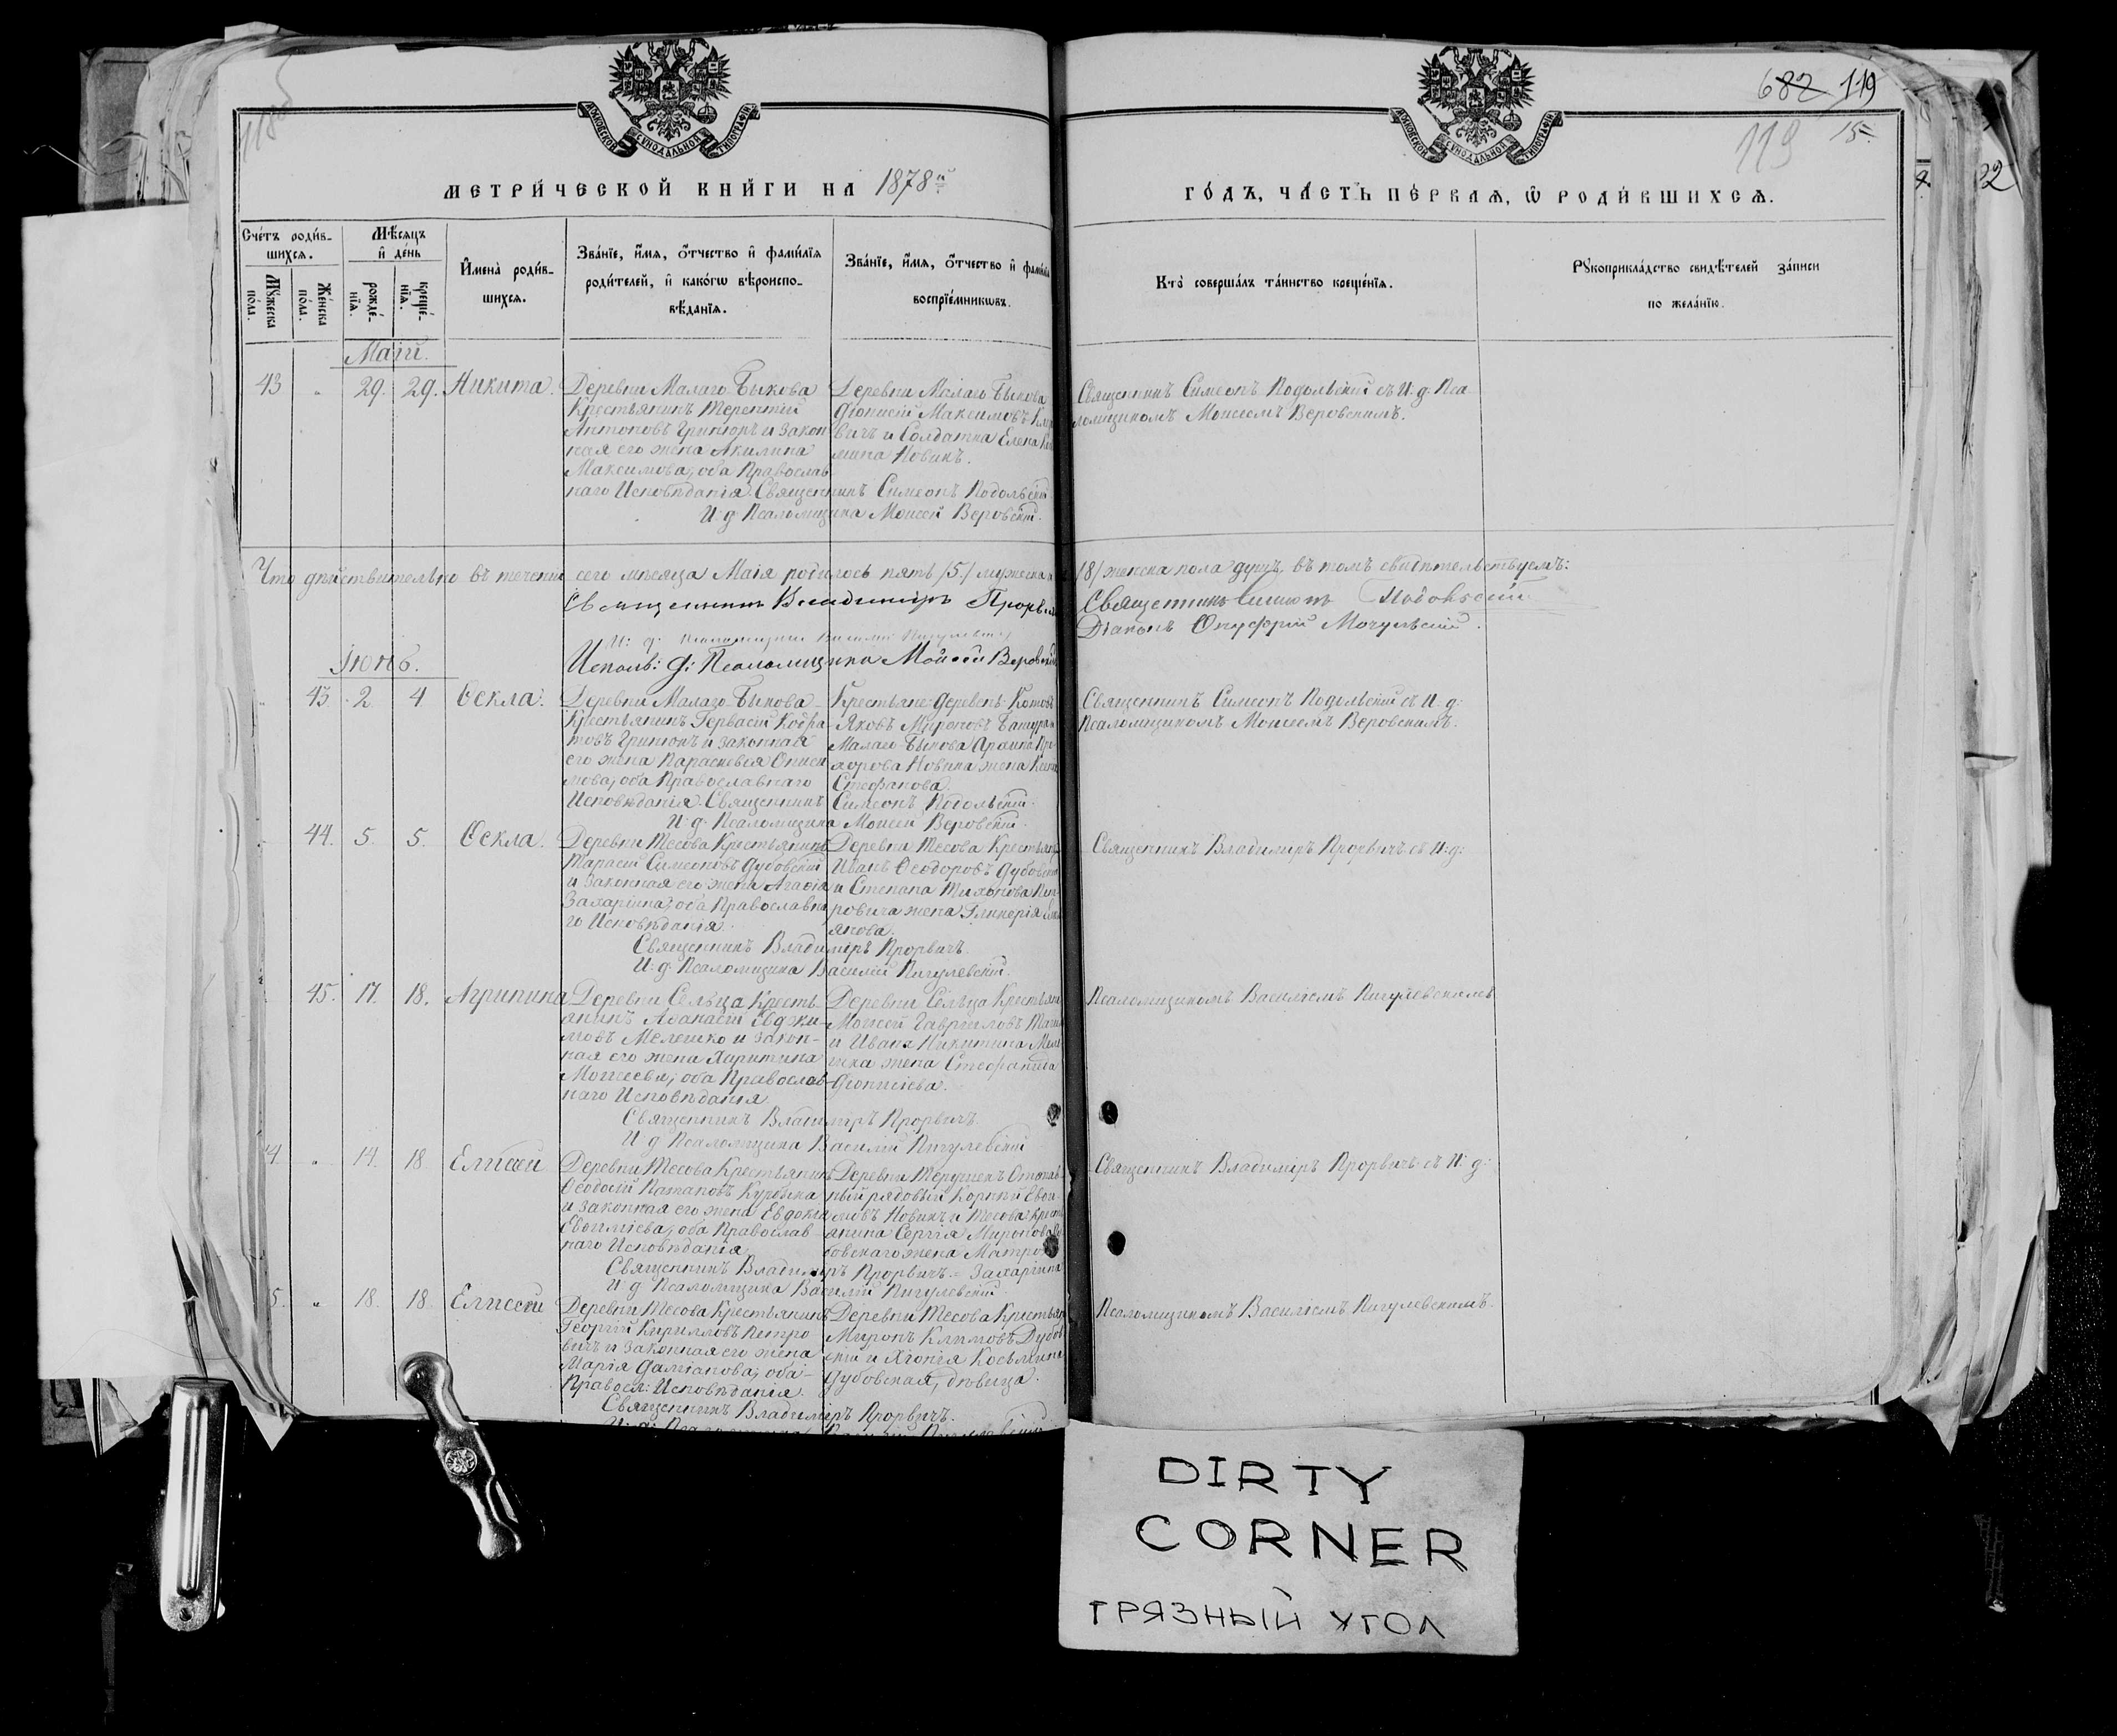 682 119
119 15
118об
МОСКОВСКОЙ СѴНОДАЛЬНОЙ ТИПОГРАФІИ
МОСКОВСКОЙ СѴНОДАЛЬНОЙ ТИПОГРАФІИ
МЕТРИ́ЧЕСКОЙ КНИ́ГИ НА 1878й
ГО́ДЪ, ЧА́СТЬ ПЕ́РВАѦ, Ѡ҆ РОДИ́ВШИХСѦ.
Счетъ роди́в-
шихсѧ.
Мѹжеска
по́ла.
Же́нска
по́ла.
Мѣ́сѧцъ
и҆ де́нь
рожде́-
нїѧ.
креще́-
нїѧ.
И҆мена̀ роди́в-
шихсѧ.
Зва́нїе, и҆́мѧ, ѻ҆́тчество и҆ фами́лїѧ
роди́телей, и҆ како́гѡ вѣроиспо-
вѣ́данїѧ.
Зва́нїе, и҆́мѧ, ѻ҆́тчество и҆ фами́лїѧ
воспрїе́мникѡвъ.
Кто̀ соверша́лъ та́инство креще́нїѧ.
Рѹкоприкла́дство свидѣ́телей за́писи
по жела́нїю.
Маій.
43 " 29. 29. Никита.
Деревни Малаго Быкова
Крестьянинъ Терентій
Антоновъ Гринюкъ и закон-
ная его жена Акилина
Максимова, оба Православ
наго Исповѣданія. Священникъ Симеонъ Подольскій.
И: д: Псаломщика Моисей Веровскій.
Деревни Малаго Быкова
Діонисій Максимовъ
вичъ и Солдатка Елена
мина Новикъ.
Священникъ Симеонъ Подольскій съ И: д: Пса-
ломщикомъ Моисеемъ Веровскимъ.
Что дѣйствительно въ теченіи сего мѣсяца Маія родилось пять /5/ мужеска и /8/ женска пола душъ, въ томъ свидѣтельствуемъ:
Священникъ Владиміръ Прорвичъ
Священникъ Симеонъ Подольскій
Діаконъ Онуфрій Мочульскій.
И: д: Псаломщика Василій Пигулевскій
Исполн: д: Псаломщика Мойсей Веровскій
Іюнь.
" 43 2 4 Ѳекла.
Деревни Малаго Быкова
Крестьянинъ Гервасій Кодра
товъ Гринюкъ и законная
его жена Параскевія Ониси
мова, оба Православнаго
Исповѣданія. Священникъ Симеонъ Подольскій.
И: д: Псаломщика Моисей Веровскій.
Крестьяне Деревень: Котовъ
Яковъ Мироновъ
Малаго Быкова Архипа Про-
хорова Новика жена
Стефанова.
Священникъ Симеонъ Подольскій съ И: д:
Псаломщикомъ Моисеемъ Веровскимъ.
44. 5. 5. Ѳекла.
Деревни Тесова Крестьянинъ
Тарасій Симеоновъ Дубовскій
и законная его жена Агаѳія
Захаріина; оба Православна
го Исповѣданія.
Священникъ Владиміръ Прорвичъ.
И: д: Псаломщика Василій Пигулевскій.
Деревни Тесова Крестьян
Иванъ Ѳеодоровъ Дубовскій
и Степана Тихонова Пет-
ровича жена Гликерія
янова.
Священникъ Владиміръ Прорвичъ съ И: д:
45. 17. 18. Агрипина
Деревни Сельца Кресть-
янинъ Аѳанасій Евдоки-
мовъ Мелешко и закон-
ная его жена Харитина
Моисеева; оба Православ-
наго Исповѣданія
Священникъ Владиміръ Прорвичъ.
И: д: Псаломщика Василій Пигулевскій
Деревни Сельца Крестьян
Моисей Гавриловъ
и Ивана Никитина Меле
шка жена Стефанида
Діонисіева.
Псаломщикомъ Василіемъ Пигулевскимъ
4 " 14. 18 Елисей
Деревни Тесова Крестьянинъ
Ѳеодосій Патаповъ
и законная его жена Евдокія
Евѳиміева, оба Православ
наго Исповѣданія
Священникъ Владиміръ Прорвичъ.
И: д: Псаломщика Василій Пигулевскій.
Деревни Терушекъ Отстав
ный рядовый Корній Евѳи-
мовъ Новикъ и Тесова крест
янина Сергія Миронова Ду
бовскаго жена Матро
Захаріина
Священникъ Владиміръ Прорвичъ съ И: д:
5. " 18. 18 Елисей
Деревни Тесова Крестьянинъ
Георгій Кирилловъ Петро
вичъ и законная его жена
Марія Даміанова, оба
Правосл: Исповѣданія.
Священникъ Владиміръ Прорвичъ.
Деревни Тесова Крестьян
Миронъ Климовъ Дубов
скій и Хіонія Косьмина
Дубовская, дѣвица.
Псаломщикомъ Василіемъ Пигулевскимъ.
DIRTY
CORNER
ГРЯЗНЫЙ УГОЛ